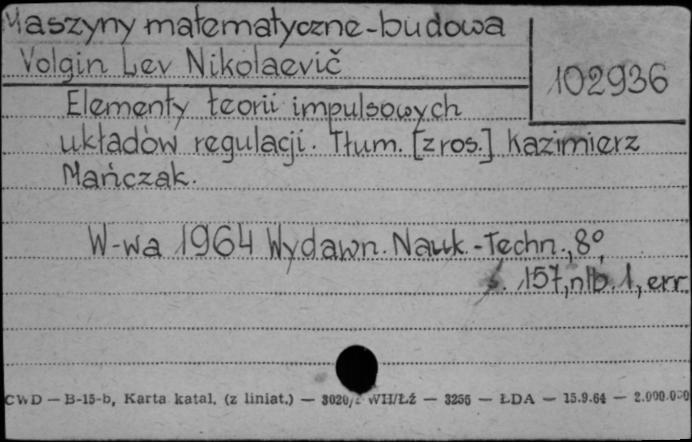 Maszyny matematyczne-budowa
Volgin Lev Nikolaevič
102936
Elementy teorii impulsowych
układów regulacji. Tłum. [z ros.] Kazimierz
Mańczak.
W-wa 1964 Wydawn. Nauk.-Techn., 8°,
s. 157, nlb. 1, err.
CWD — B-15-b, Karta katal. (z liniat.) — 3020/Z WH/ŁŹ — 3256 — ŁDA — 15.9.64 — 2.000.000